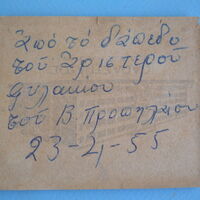 Ἀπό τό δάπεδο
τοῦ Ἀριστεροῦ
φυλακίου
τοῦ Β. Προπυλαίου
23-4-55